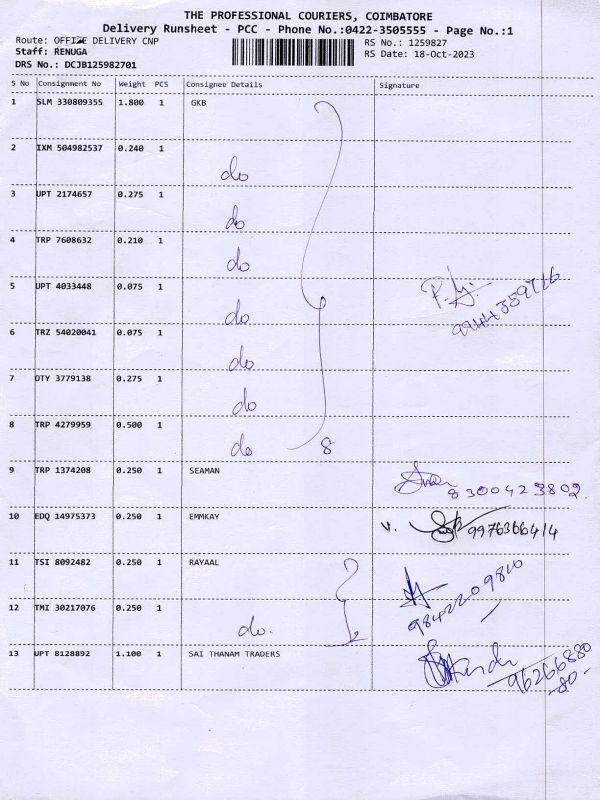 THE PROFESSIONAL COURIERS, COIMBATORE
Delivery Runsheet - PCC - Phone No.:0422-3505555 - Page No.:1
Route: OFFICE DELIVERY CNP
RS No.: 1259827
Staff: RENUGA
RS Date: 18-Oct-2023
DRS No.: DCJB125982701
S No Consignment No Weight PCS Consignee Details Signature
1 SLM 330809355 1.800 1 GKB
2 IXM 504982537 0.240 1
do
3 UPT 2174657 0.275 1
do
4 TRP 7608632 0.210 1
do
5 UPT 4033448 0.075 1
do
6 TRZ 54020041 0.075 1
do
7 OTY 3779138 0.275 1
do
8 TRP 4279959 0.500 1
do 8
9 TRP 1374208 0.250 1 SEAMAN
8300423802
10 EDQ 14975373 0.250 1 EMMKAY
V. 9976366414
11 TSI 8092482 0.250 1 RAYAAL
12 TMI 30217076 0.250 1
do. 2
9842209810
13 UPT 8128892 1.100 1 SAI THANAM TRADERS
96266880
-80-